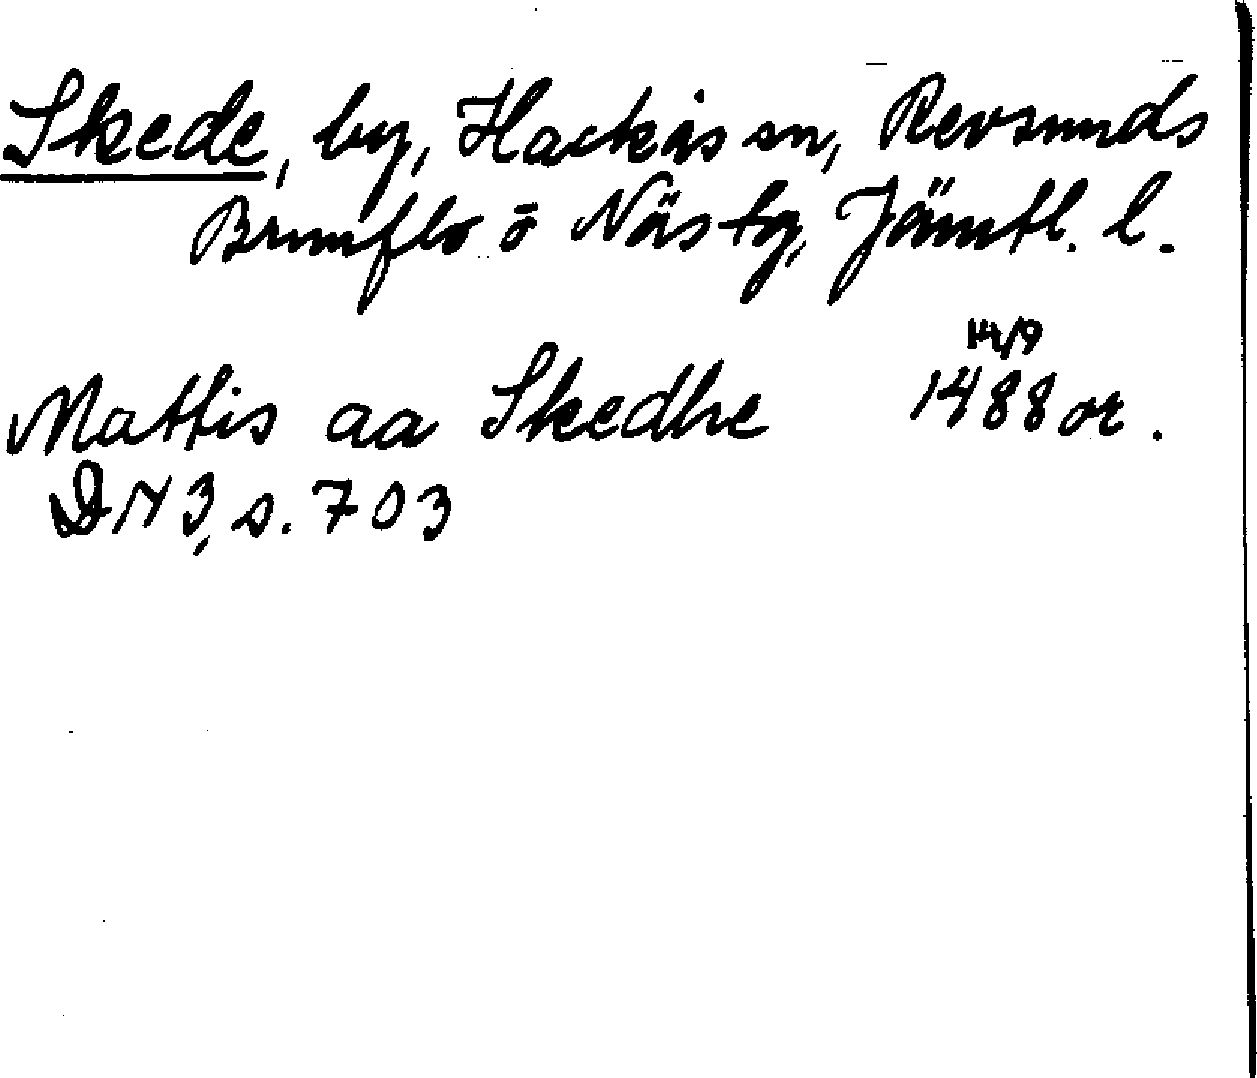 Skede, by, Hackås sn, Revsunds
Brunflo o Näs tg, Jämtl. l.
14/9
Mattis aa Skedhe 1488 or.
DN 3, s. 703